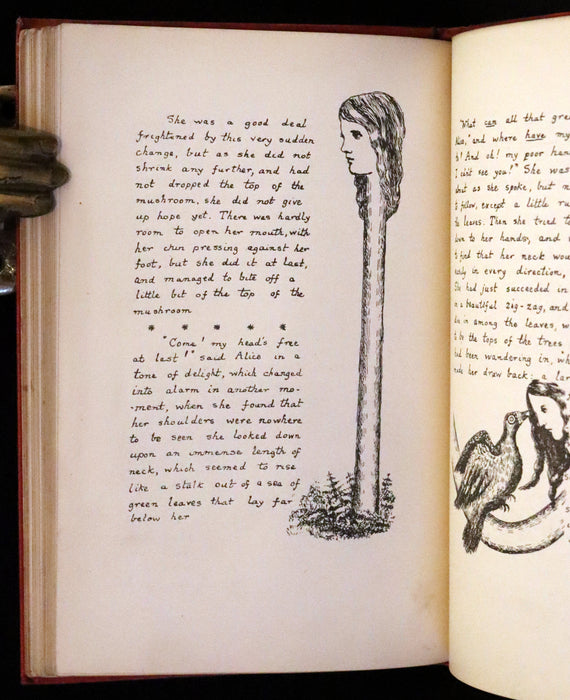 She was a good deal
frightened by this very sudden
change, but as she did not
shrink any further, and had
not dropped the top of the
mushroom, she did not give
up hope yet. There was hardly
room to open her mouth, with
her chin pressing against her
foot, but she did it at last,
and managed to bite off a
little bit of the top of the
mushroom
* * * * *
"Come! my head's free
at last!" said Alice in a
tone of delight, which changed
into alarm in another mo-
-ment, when she found that
her shoulders were nowhere
to be seen she looked down
upon an immense length of
neck, which seemed to rise
like a stalk out of a sea of
green leaves that lay far
below her
"What can all that gre
and where have my
! And oh! my poor han
I can't see you?" She was
as she spoke, but
follow, except a little
leaves. Then she tried t
down to her hands, and
find that her neck wou
in every direction,
She had just succeeded in
a beautiful zig-zag, and
in among the leaves, w
to be the tops of the trees
had been wandering in, wh
made her draw back: a lar